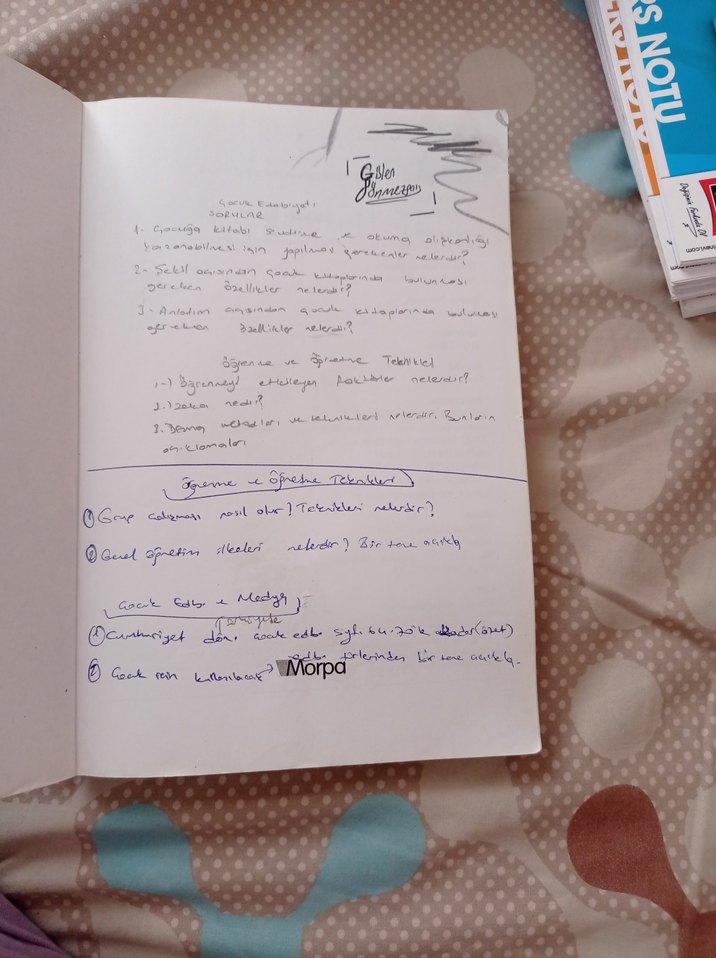 RS NOTU
Değişimin Farkında Ol
Gülen
Dönmezgöz
Çocuk Edebiyatı
SORULAR
1- Çocuğa kitabı sevdirme ve okuma alışkanlığı
kazanabilmesi için yapılması gerekenler nelerdir?
2- Şekil açısından çocuk kitaplarında bulunması
gereken özellikler nelerdir?
3- Anlatım açısından çocuk kitaplarında bulunması
gereken özellikler nelerdir?
Öğrenme ve Öğretme Teknikleri
1-) Öğrenmeyi etkileyen faktörler nelerdir?
2.) zeka nedir?
3. metodları ve teknikleri nelerdir. Bunların
açıklamaları
Öğrenme ve Öğretme Teknikleri
1 Grup çalışması nasıl olur? Teknikleri nelerdir?
2 Genel öğretim ilkeleri nelerdir? Bir tane açıkla
Çocuk Edb. ve Medya
1 Cumhuriyet dön. çocuk edb. syf. 64. 70'e kadar (özet)
2 Çocuk için kullanılacak edb. türlerinden bir tane açıkla.
Morpa